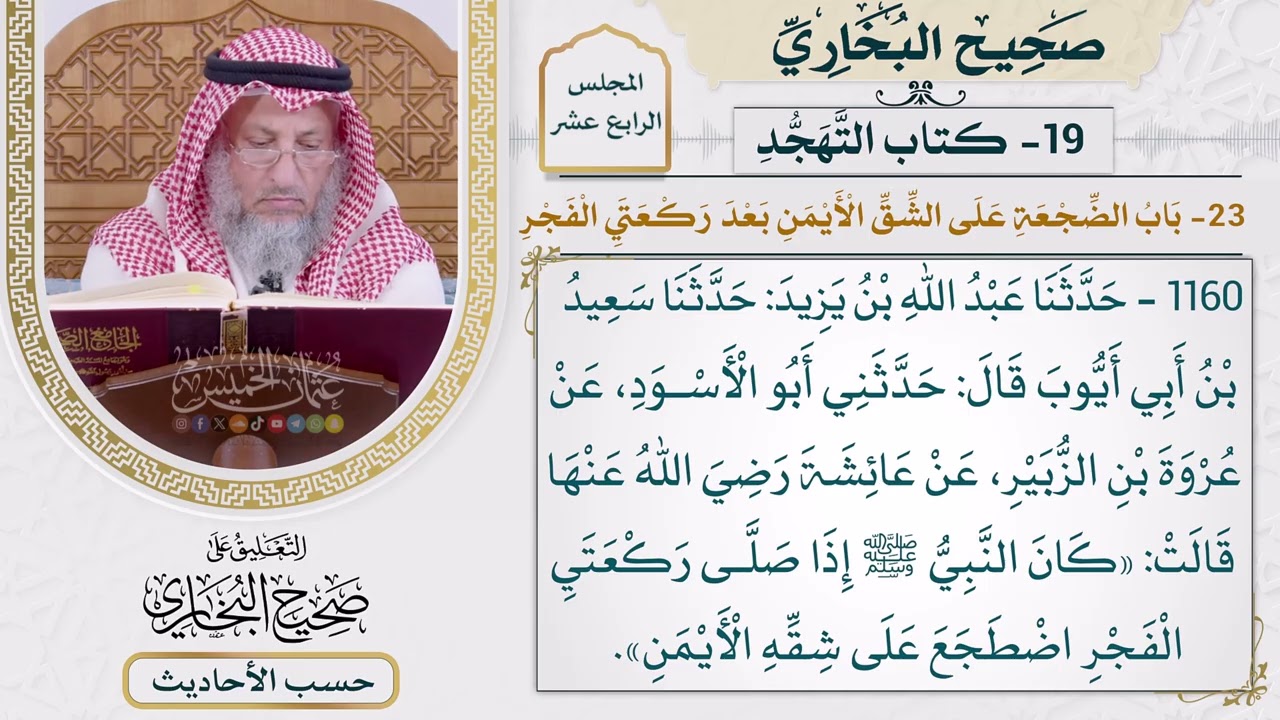 صَحِيح البُخَارِيِّ
المجلس
الرابع عشر
19- كتاب التَّهَجُّدِ
23- بَابُ الضِّجْعَةِ عَلَى الشِّقِّ الْأَيْمَنِ بَعْدَ رَكْعَتَيِ الْفَجْرِ
1160 - حَدَّثَنَا عَبْدُ اللهِ بْنُ يَزِيدَ: حَدَّثَنَا سَعِيدُ
بْنُ أَبِي أَيُّوبَ قَالَ: حَدَّثَنِي أَبُو الْأَسْـوَدِ، عَنْ
عُرْوَةَ بْنِ الزُّبَيْرِ، عَنْ عَائِشَةَ رَضِيَ اللهُ عَنْهَا
قَالَتْ: «كَانَ النَّبِيُّ ﷺ إِذَا صَلَّـى رَكْعَتَيِ
الْفَجْرِ اضْطَجَعَ عَلَى شِقِّهِ الْأَيْمَنِ».
عُثمان الخميس
التَّعْلِيقُ عَلَى
صَحِيح البُخَارِي
حسب الأحاديث